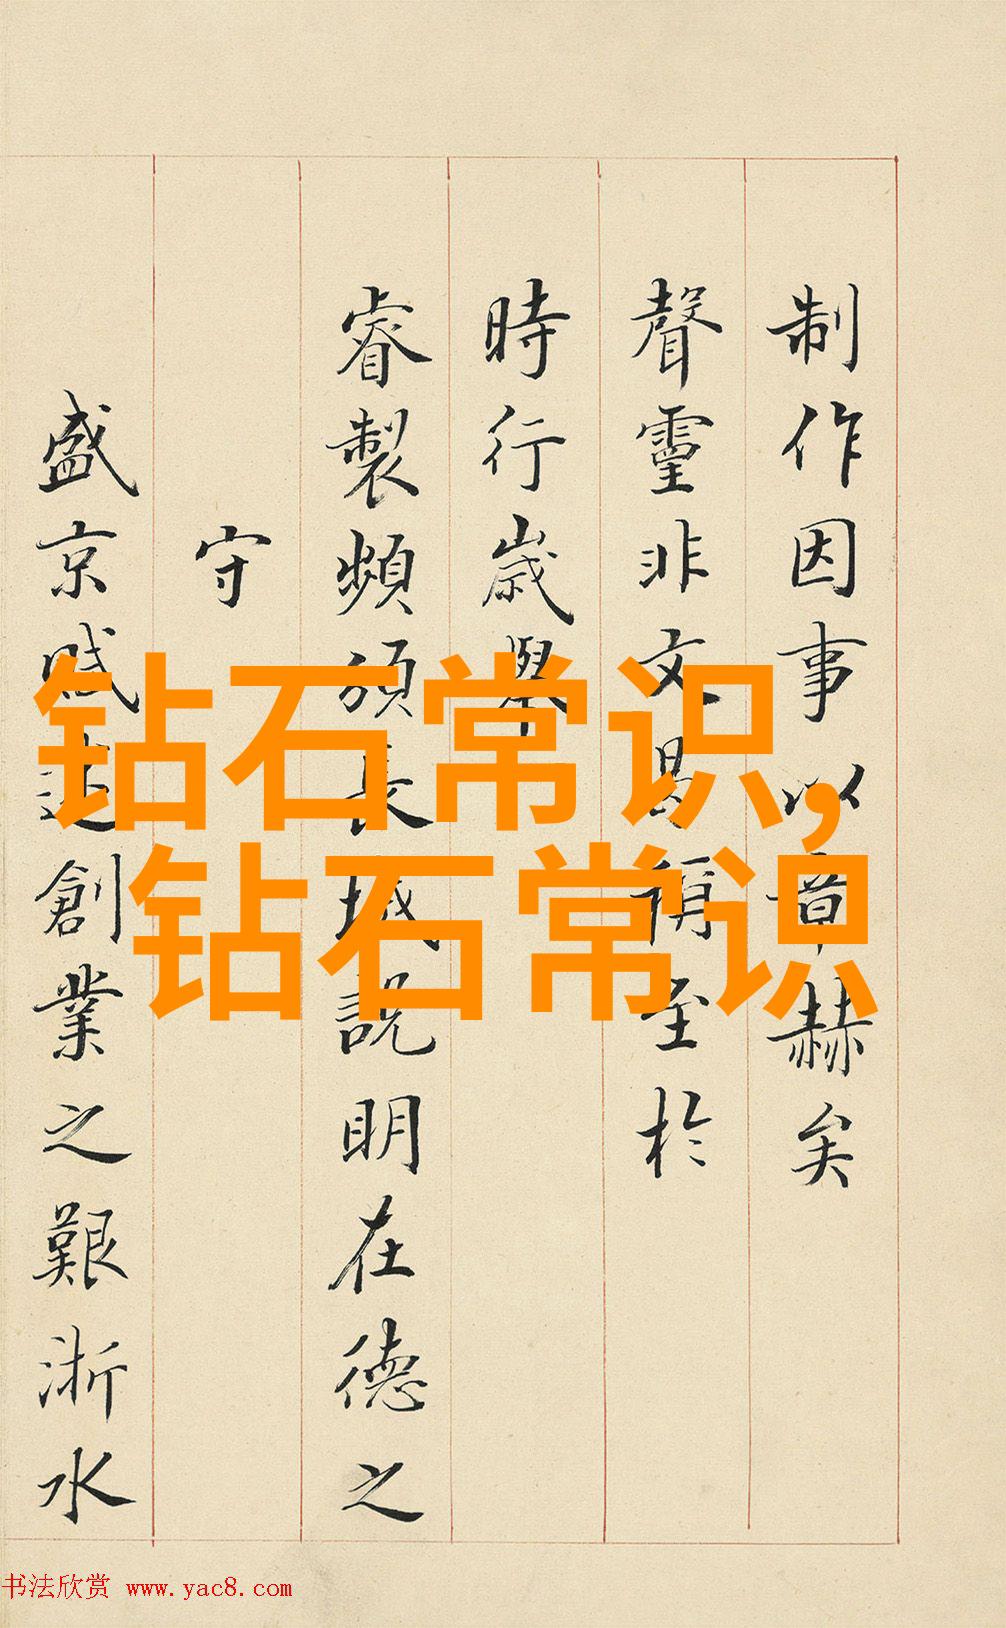 制作因事以章赫矣
聲靈非文曷稱至於
時行歲舉
睿製頻頒長城説明在德之
守
盛京賦述創業之艱浙水
钻石常识,
钻石常识
书法欣赏 www.yac8.com